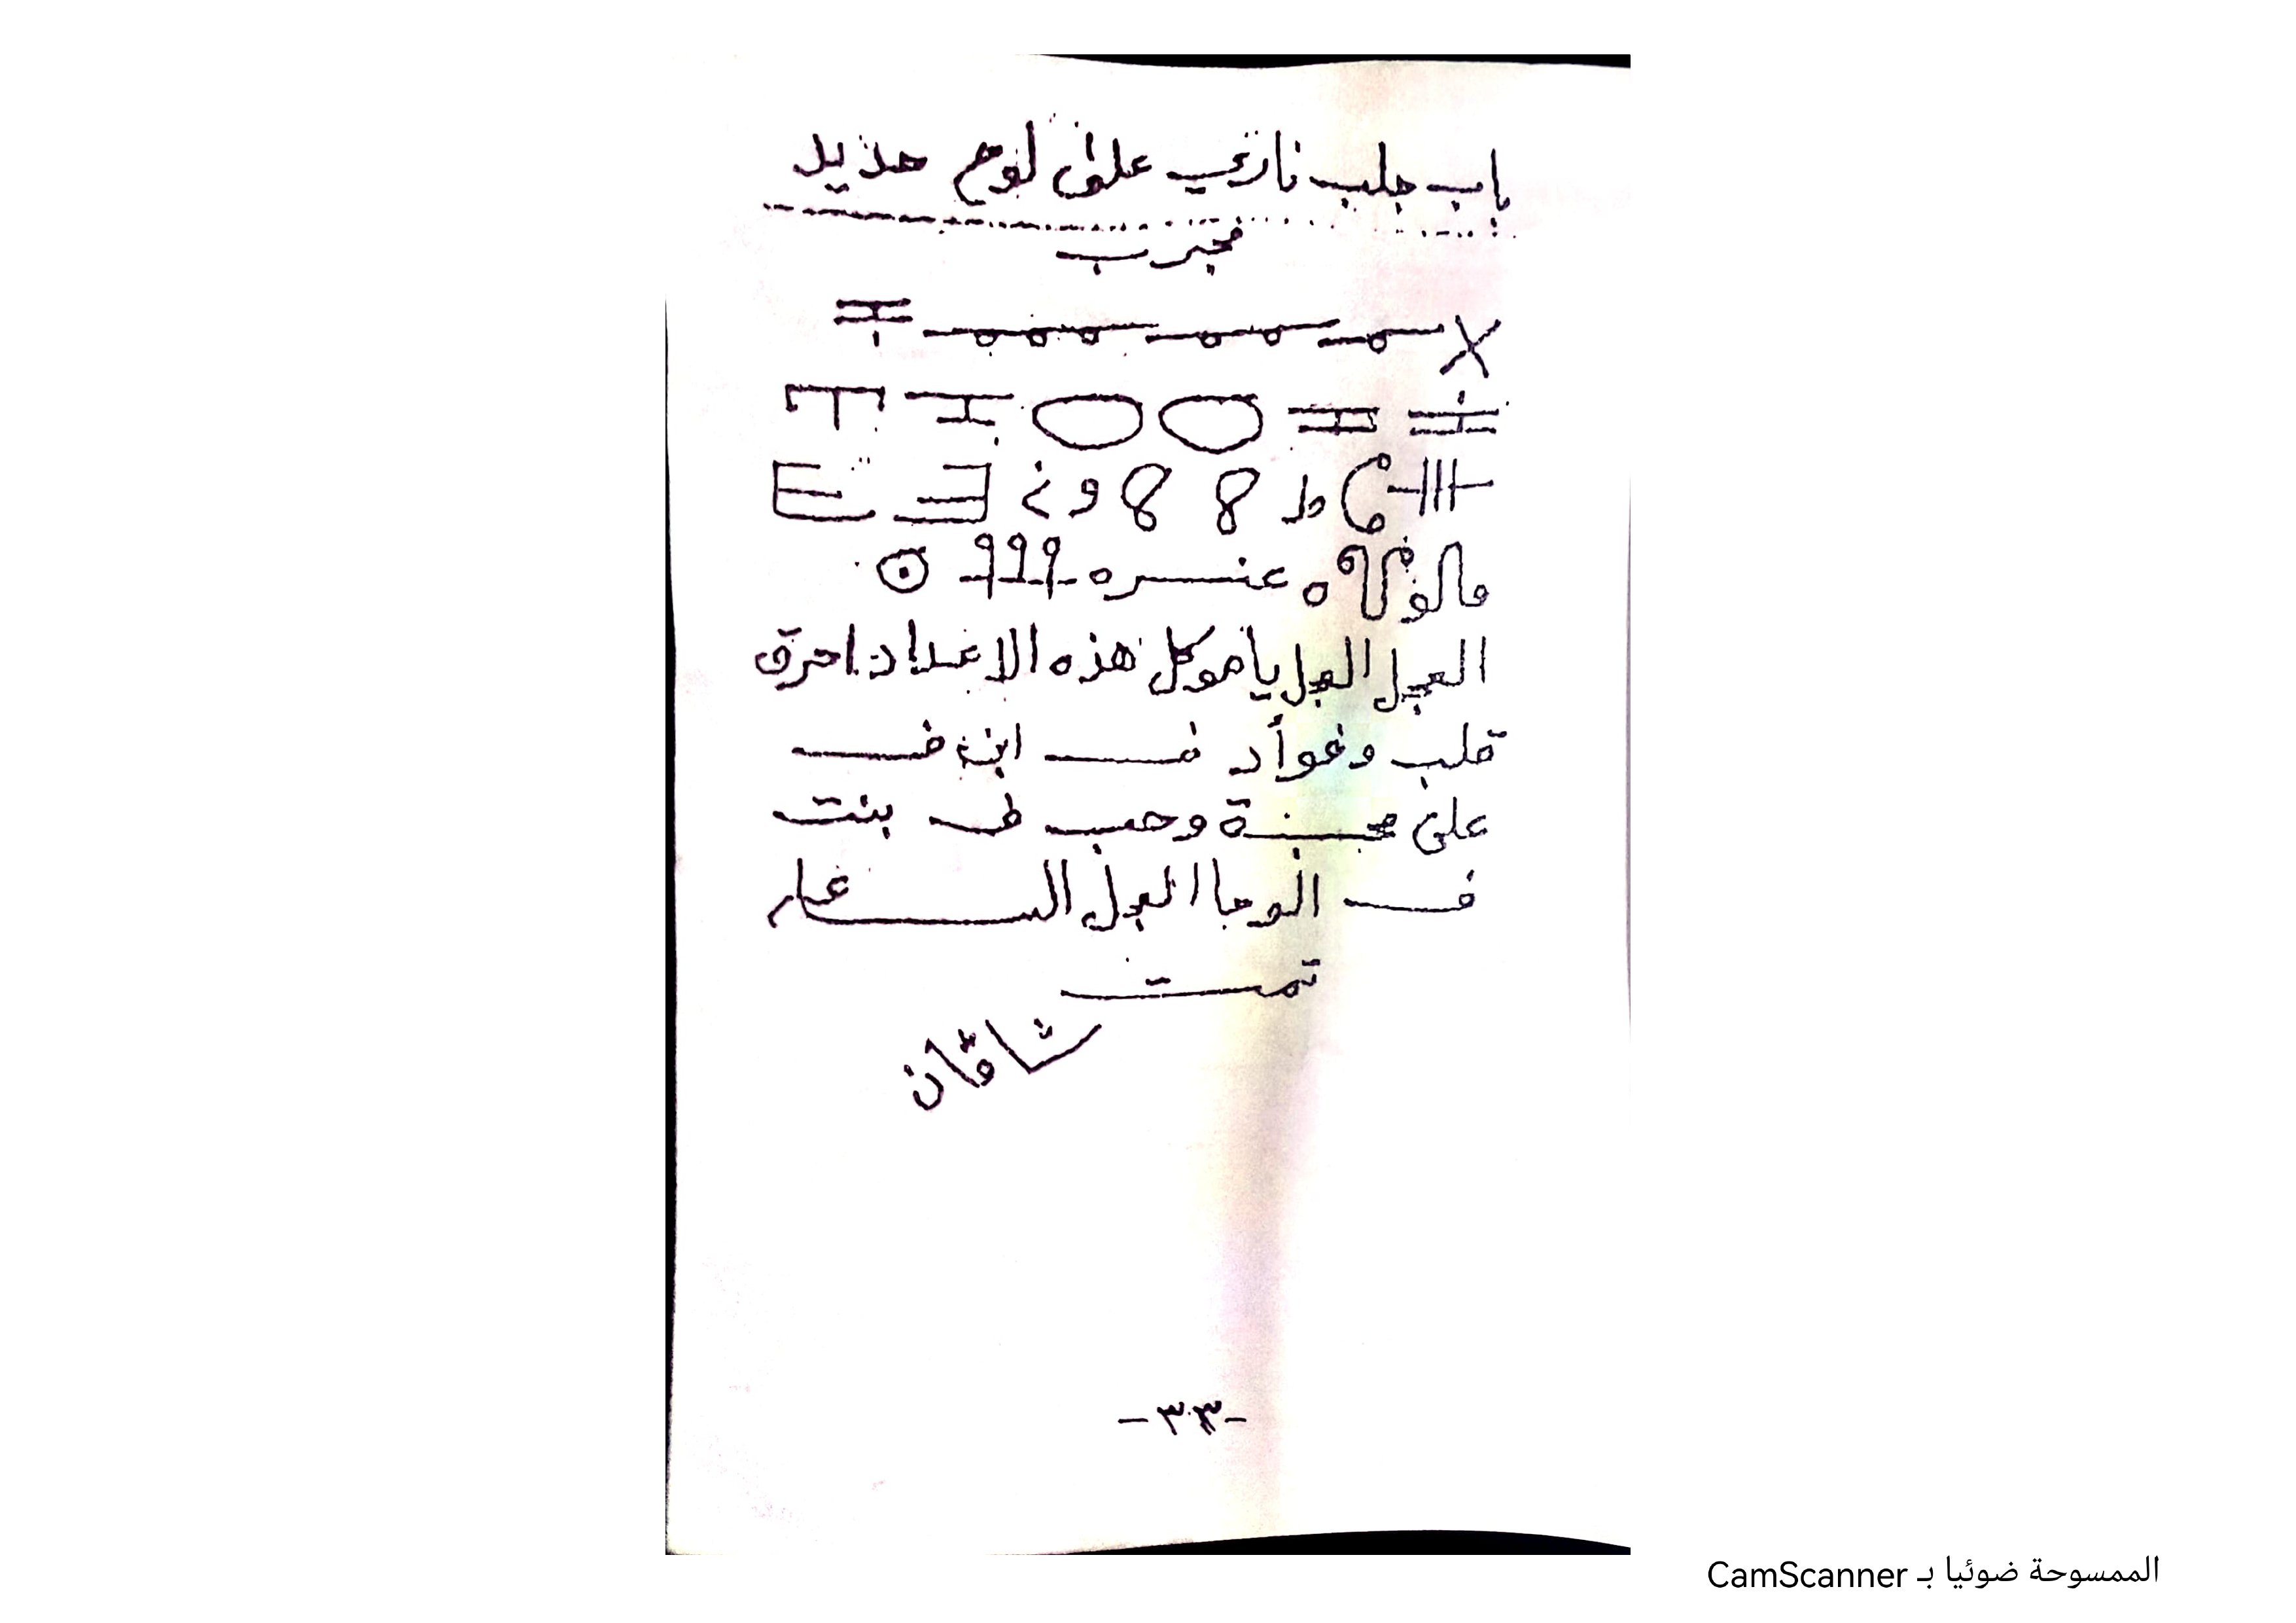 باب جلب ناري على لوح حديد
مجرب
X
ط 8 8 و
عنـــره ٩٩٩
العجل العجل يا موكل هذه الاعداد احرق
قلب وفوأد فـــ ابن فـــ
على محبــنة وحب فــ بنت
فــ الوحا العجل الســـاعـ
تمـــت
ثاقان
-٣٣-
الممسوحة ضوئيا بـ CamScanner